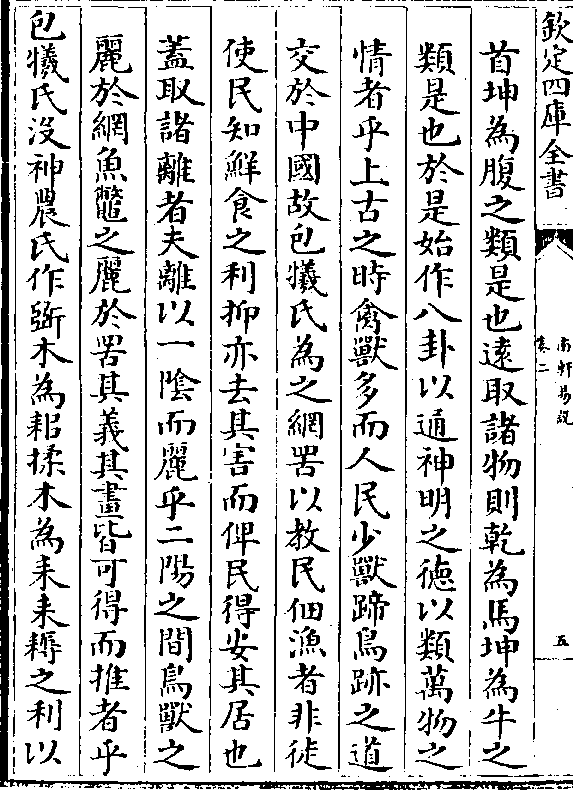 欽定四庫全書
南軒易說
卷二
五
首坤為腹之類是也遠取諸物則乾為馬坤為牛之
類是也於是始作八卦以通神明之德以類萬物之
情者乎上古之時禽獸多而人民少獸蹄鳥跡之道
交於中國故包犧氏為之網罟以教民佃漁者非徒
使民知鮮食之利抑亦去其害而俾民得安其居也
蓋取諸離者夫離以一陰而麗乎二陽之間鳥獸之
麗於網魚鼈之麗於罟其義其畫皆可得而推者乎
包犧氏沒神農氏作斲木為耜揉木為耒耒耨之利以